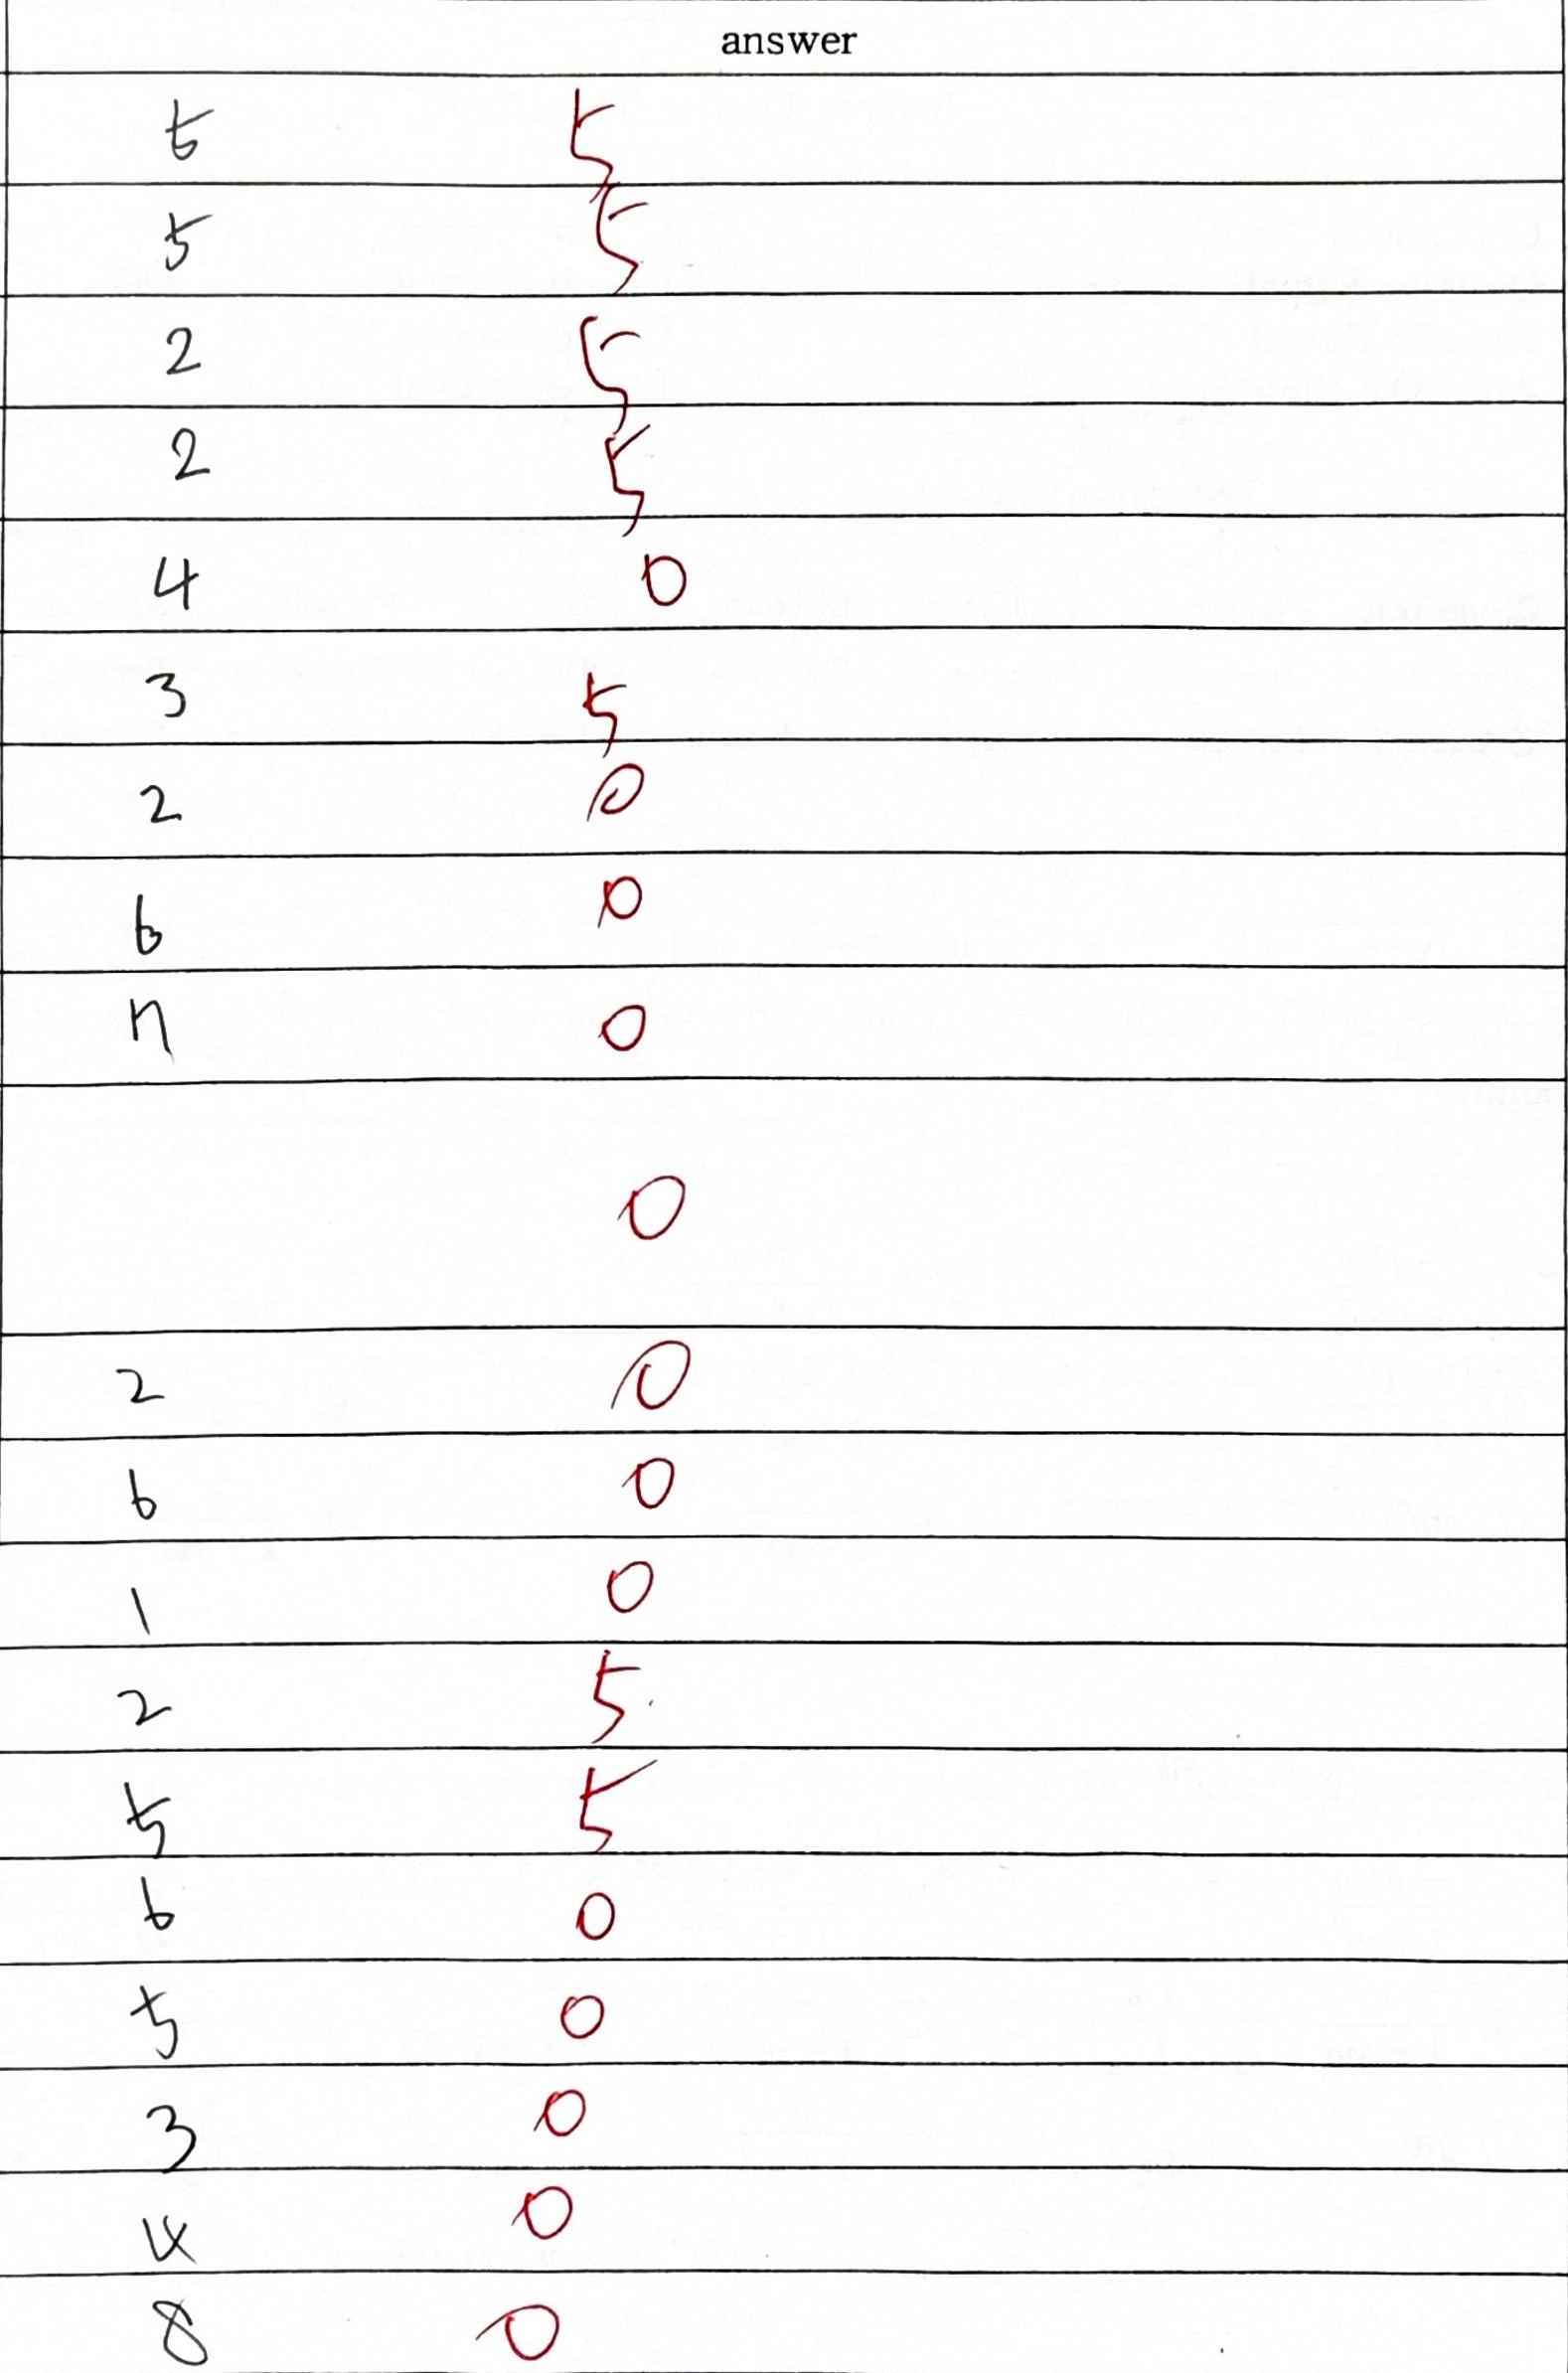 answer
5 5
5 5
2 5
2 5
4 0
3 5
2 0
6 0
n 0
0
2 0
6 0
1 0
2 5
5 5
6 0
5 0
3 0
4 0
8 0